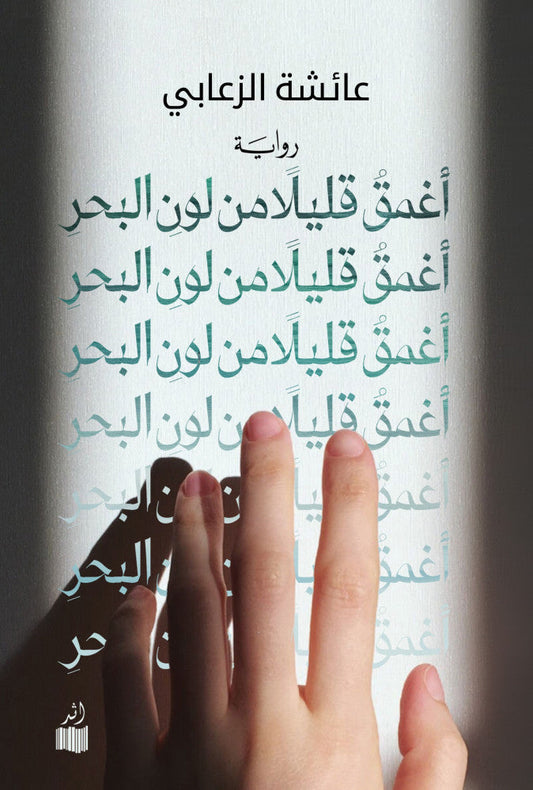 عائشة الزعابي
رواية
أغمقُ قليلًا من لونِ البحرِ
أغمقُ قليلًا من لونِ البحرِ
أغمقُ قليلًا من لونِ البحرِ
أغمقُ قليلًا من لونِ البحرِ
أغمقُ البحرِ
أغمقُ البحرِ
أغمقُ حرِ
اثر